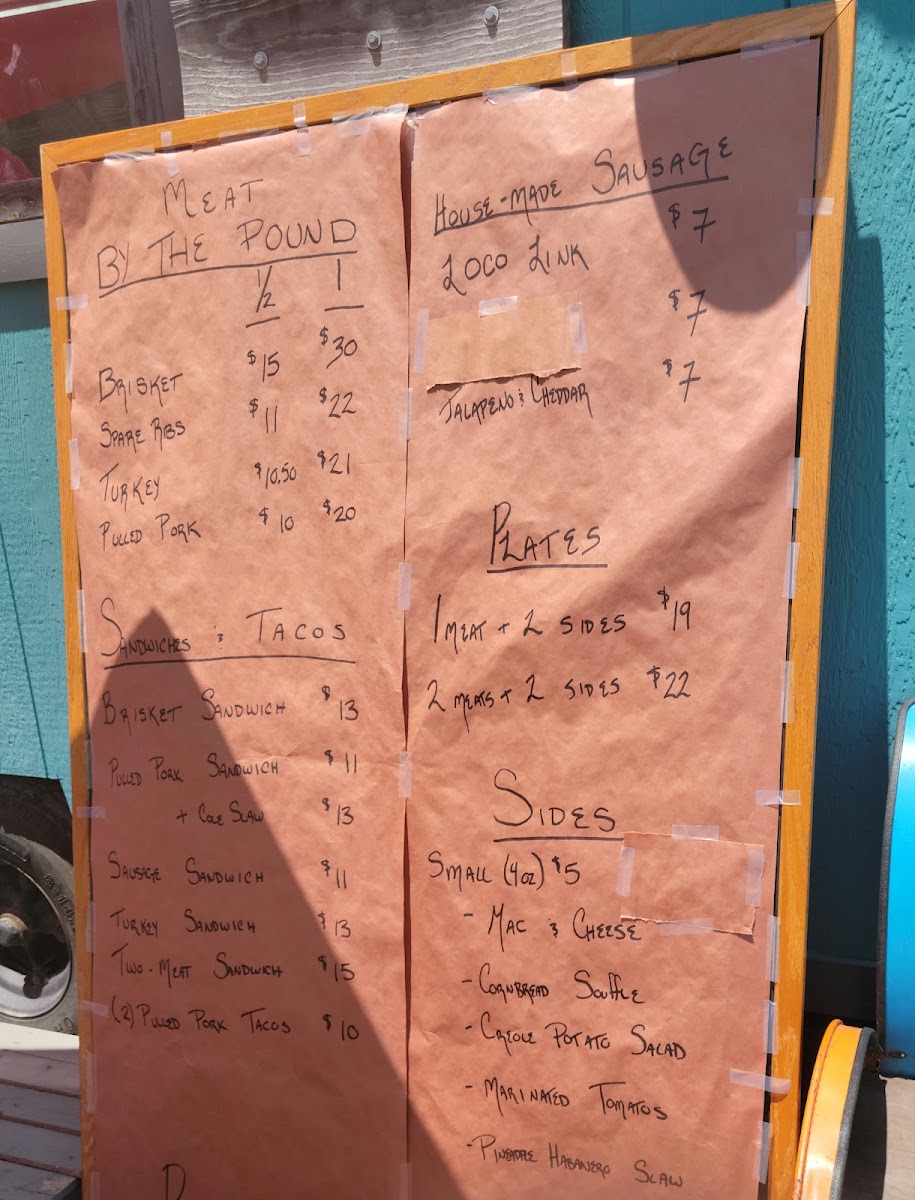 MEAT
BY THE POUND
1/2 1
BRISKET $15 $30
SPARE RIBS $11 $22
TURKEY $10.50 $21
PULLED PORK $10 $20
SANDWICHES & TACOS
BRISKET SANDWICH $13
PULLED PORK SANDWICH $11
+ COLE SLAW $13
SAUSAGE SANDWICH $11
TURKEY SANDWICH $13
TWO-MEAT SANDWICH $15
(2) PULLED PORK TACOS $10
HOUSE-MADE SAUSAGE
LOCO LINK $7
$7
JALAPENO & CHEDDAR $7
PLATES
1 MEAT + 2 SIDES $19
2 MEATS + 2 SIDES $22
SIDES
SMALL (4oz) $5
- MAC & CHEESE
- CORNBREAD SOUFFLE
- CREOLE POTATO SALAD
- MARINATED TOMATOS
- PINEAPPLE HABANERO SLAW